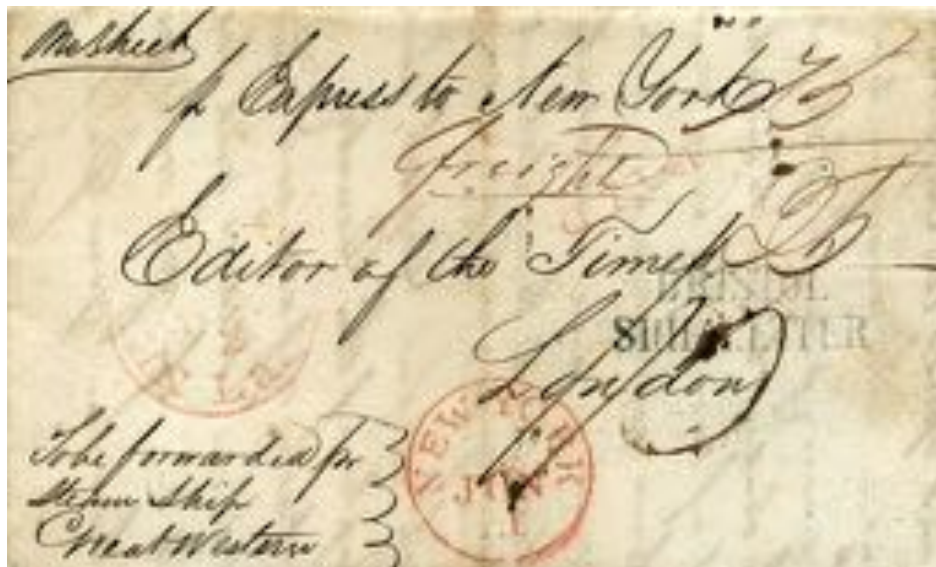 One Sheet
p Express to New York
Freight
Editor of the Times
London
BRISTOL
SHIP LETTER
La.
NEW YORK
JUN
1
To be forwarded pr
Steam Ship
Great Western